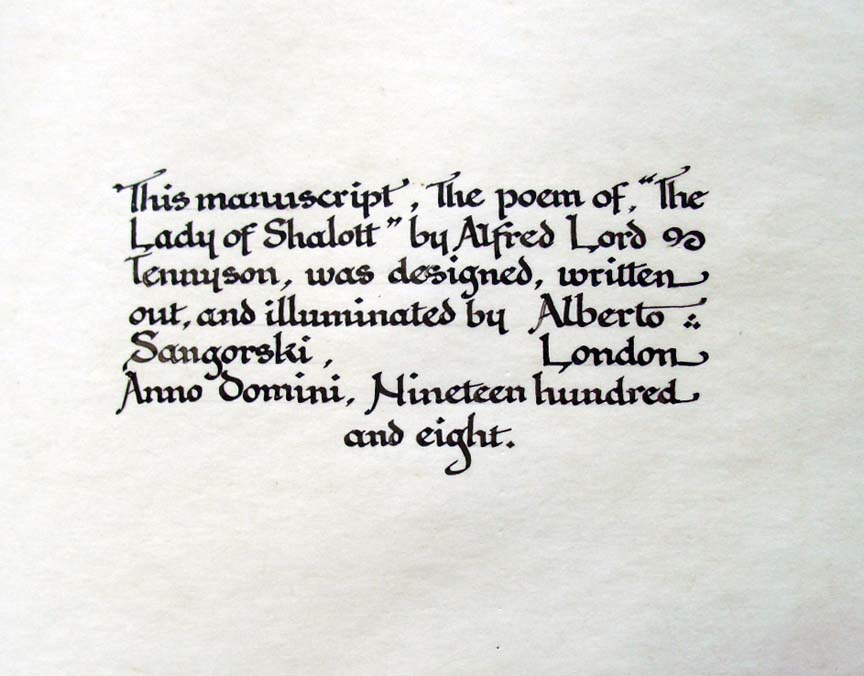 This manuscript, The poem of, "The
Lady of Shalott" by Alfred Lord
Tennyson, was designed, written
out, and illuminated by Alberto
Sangorski, London
Anno Domini, Nineteen hundred
and eight.